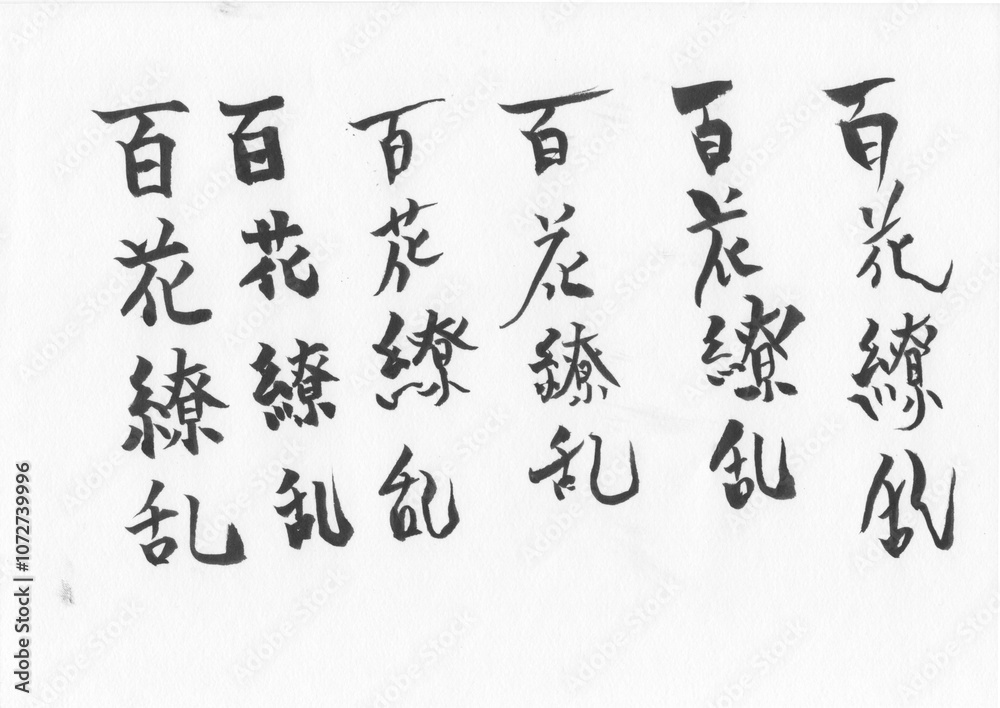 百花繚乱
百花繚乱
百花繚乱
百花繚乱
百花繚乱
百花繚乱
Adobe Stock | #1072739996